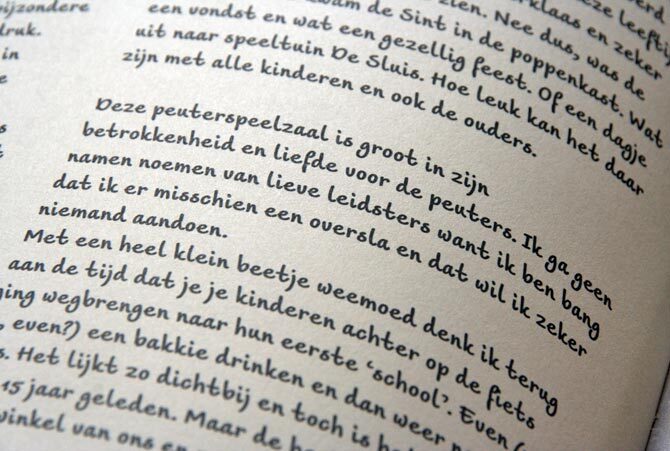 bijzondere
druk.
in
zien. Nee dus, was de
een vondst en wat een gezellig feest. Of een dagje
uit naar speeltuin De Sluis. Hoe leuk kan het daar
zijn met alle kinderen en ook de ouders.
Deze peuterspeelzaal is groot in zijn
betrokkenheid en liefde voor de peuters. Ik ga geen
namen noemen van lieve leidsters want ik ben bang
dat ik er misschien een oversla en dat wil ik zeker
niemand aandoen.
Met een heel klein beetje weemoed denk ik terug
aan de tijd dat je je kinderen achter op de fiets
ging wegbrengen naar hun eerste ‘school’. Even (
, even?) een bakkie drinken en dan weer
s. Het lijkt zo dichtbij en toch is
15 jaar geleden. Maar de
winkel van ons en